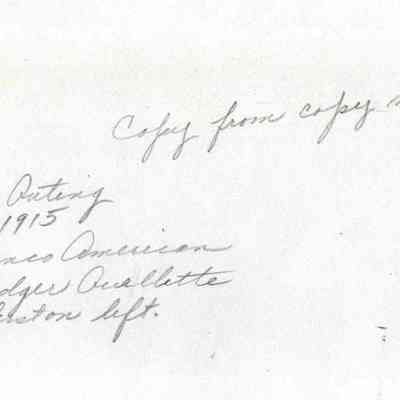 Copy from copy
Outing
1915
nco American
dger Ouellette
left.